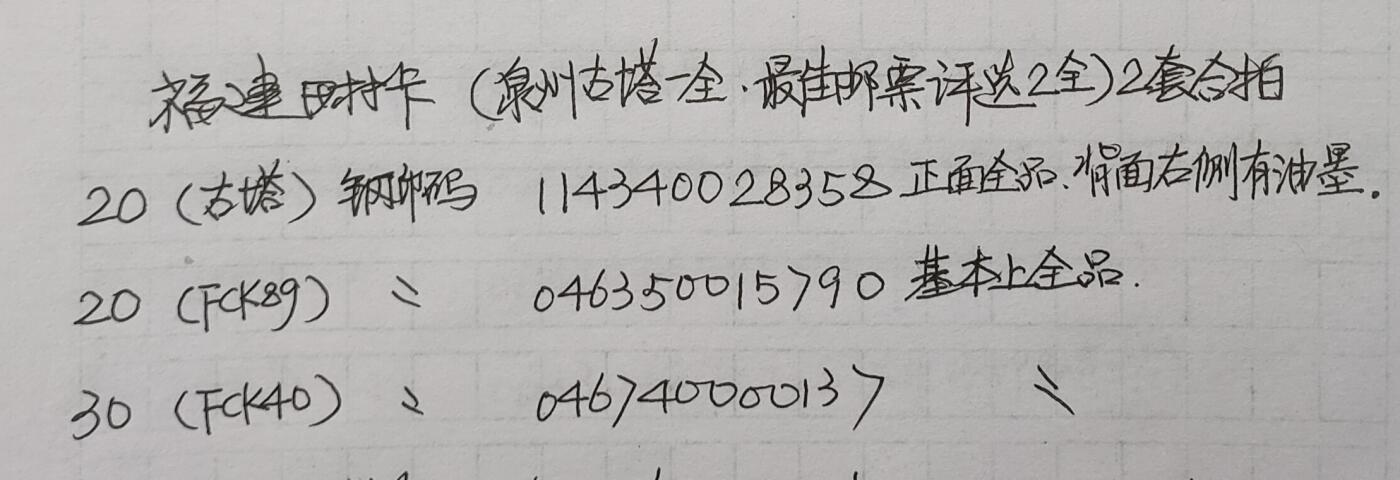 福建田村卡（泉州古塔一全.最佳邮票评选2全）2套合拍
20（古塔）钢印码 114340028358 正面全品、背面右侧有油墨.
20（FCK89） 〃 046350015790 基本上全品.
30（FCK40） 〃 046740000137 〃